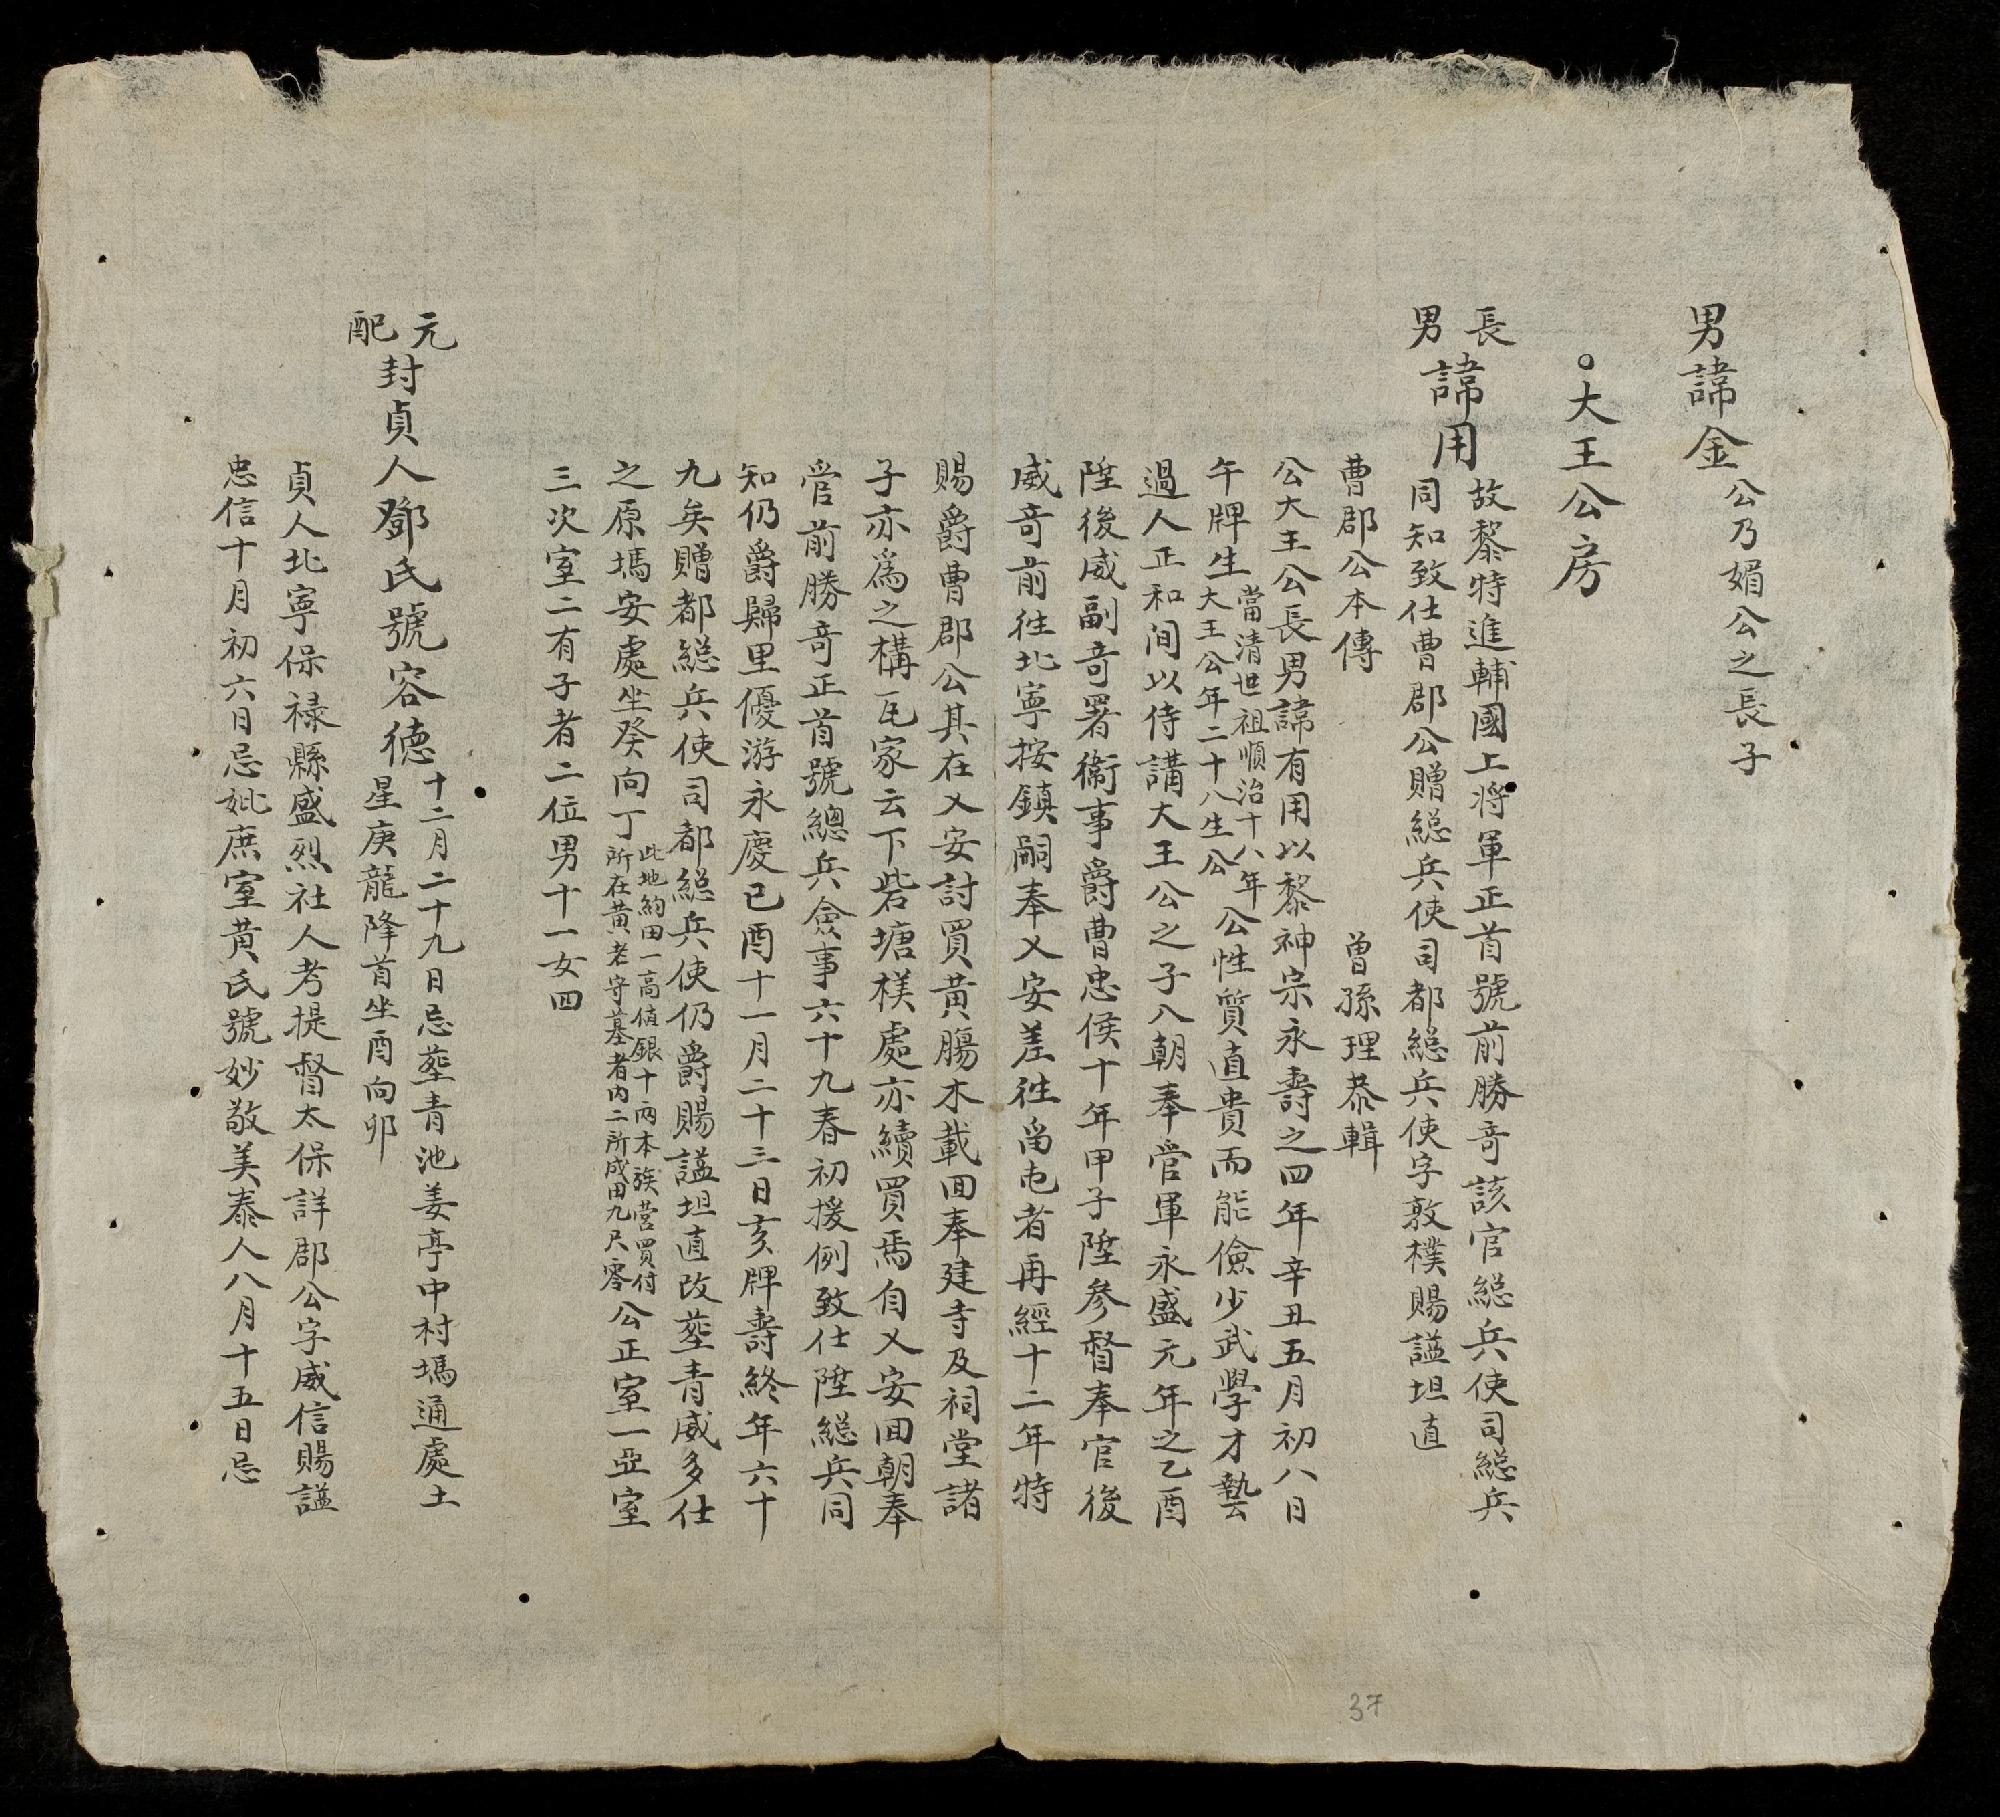 男諱金公乃媚公之長子
。大王公房
長男諱用故黎特進輔國上將軍正首號前勝竒該官総兵使司総兵
同知致仕曹郡公贈総兵使司都総兵使字敦樸賜謚坦直
曹郡公本傳 曾孫理恭輯
公大王公長男諱有用以黎神宗永壽之四年辛丑五月初八日
午牌生當清世祖順治十八年大王公年二十八生公公性質直貴而能儉少武學才藝
過人正和间以侍講大王公之子入朝奉管軍永盛元年之乙酉
陞後威副竒署衞事爵曹忠侯十年甲子陞參督奉官後
威竒前徃北寧按鎮嗣奉乂安差徃畄屯者再經十二年特
賜爵曹郡公其在乂安討買黄腸木載回奉建寺及祠堂諸
子亦爲之構瓦家云下砦塘模處亦續買焉自乂安回朝奉
管前勝竒正首號總兵僉事六十九春初援例致仕陞総兵同
知仍爵歸里優游永慶己酉十一月二十三日亥牌壽終年六十
九矣贈都総兵使司都総兵使仍爵賜謚坦直改塟青威多仕
之原塢安處坐癸向丁此地約田一高值銀十両本族营買付所在黄老守墓者内二所成田九尺零公正室一亞室
三次室二有子者二位男十一女四
元配封貞人鄧氏號容德十二月二十九日忌塟青池姜亭中村塢通處土
星庚龍降首坐酉向卯
貞人北寧保禄縣盛烈社人考提督太保詳郡公字威信賜謚
忠信十月初六日忌妣庶室黄氏號妙敬美泰人八月十五日忌
37